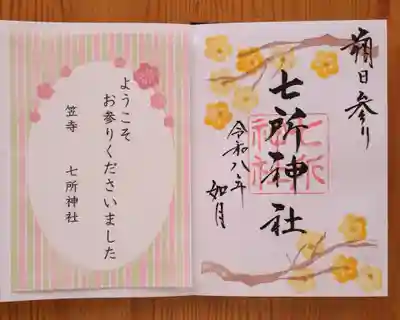 朔日参り
七所神社
七所
神社
令和八年
如月
ようこそ
お参りくださいました
笠寺 七所神社